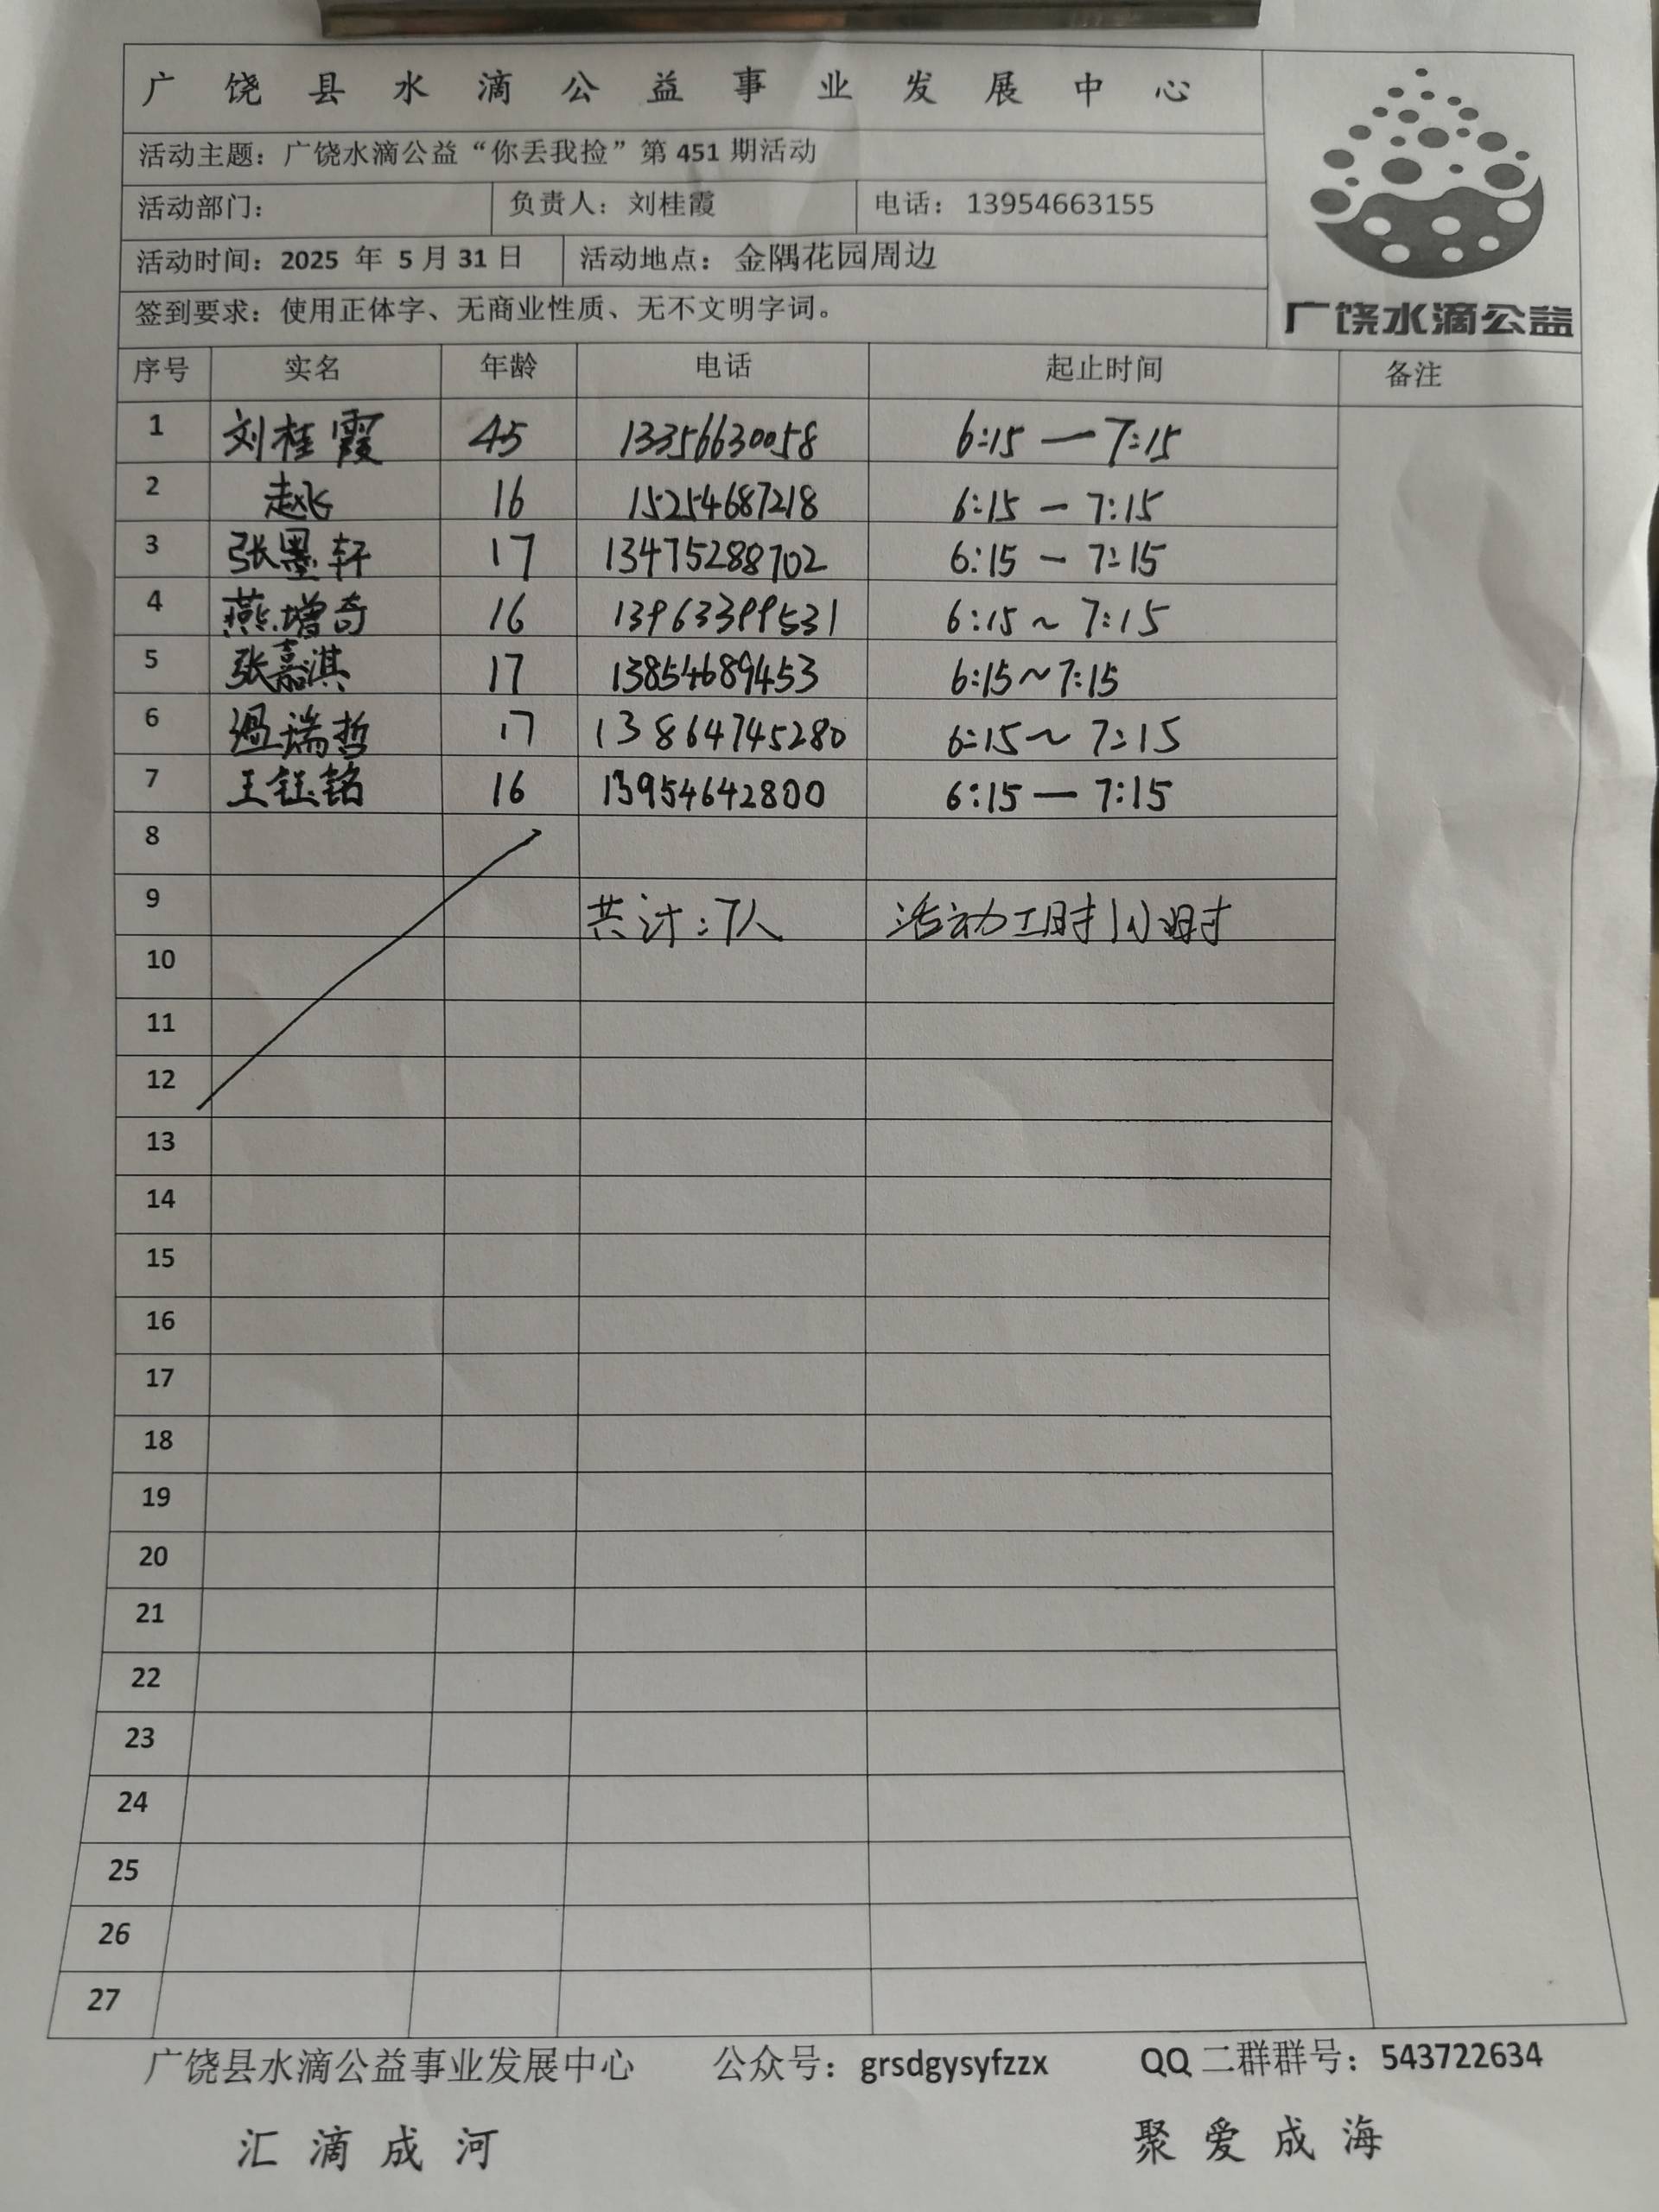 广饶县水滴公益事业发展中心
活动主题：广饶水滴公益“你丢我捡”第 451 期活动
活动部门： 负责人：刘桂霞 电话：13954663155
活动时间：2025 年 5 月 31 日 活动地点：金隅花园周边
签到要求：使用正体字、无商业性质、无不文明字词。
广饶水滴公益
序号 实名 年龄 电话 起止时间 备注
1 刘桂霞 45 13356630058 6:15 — 7:15
2 赵飞 16 15254687218 6:15 — 7:15
3 张墨轩 17 13475288702 6:15 — 7:15
4 燕增奇 16 13963399531 6:15 ~ 7:15
5 张嘉淇 17 13854689453 6:15~7:15
6 温瑞哲 17 13864745280 6:15~ 7:15
7 王钰铭 16 13954642800 6:15 — 7:15
8
9 共计：7人 活动工时1小时
10
11
12
13
14
15
16
17
18
19
20
21
22
23
24
25
26
27
广饶县水滴公益事业发展中心 公众号：grsdgysyfzzx QQ 二群群号：543722634
汇滴成河 聚爱成海